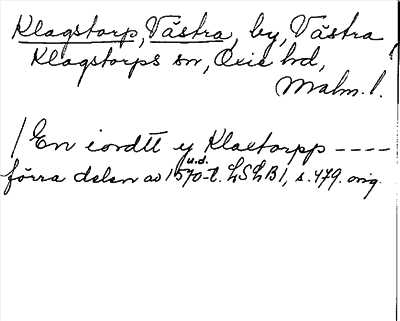 Klagstorp, Västra, by, Västra
Klagstorps sn, Oxie hd,
Malm. l.
/ En iordtt y Klaetorpp ----
u.d.
förra delen av 1570-t. LSLB 1, s. 479. orig.